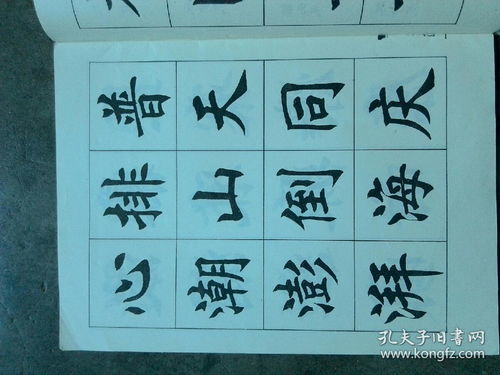 普天同庆
排山倒海
心潮澎湃
孔夫子旧书网
www.kongfz.com